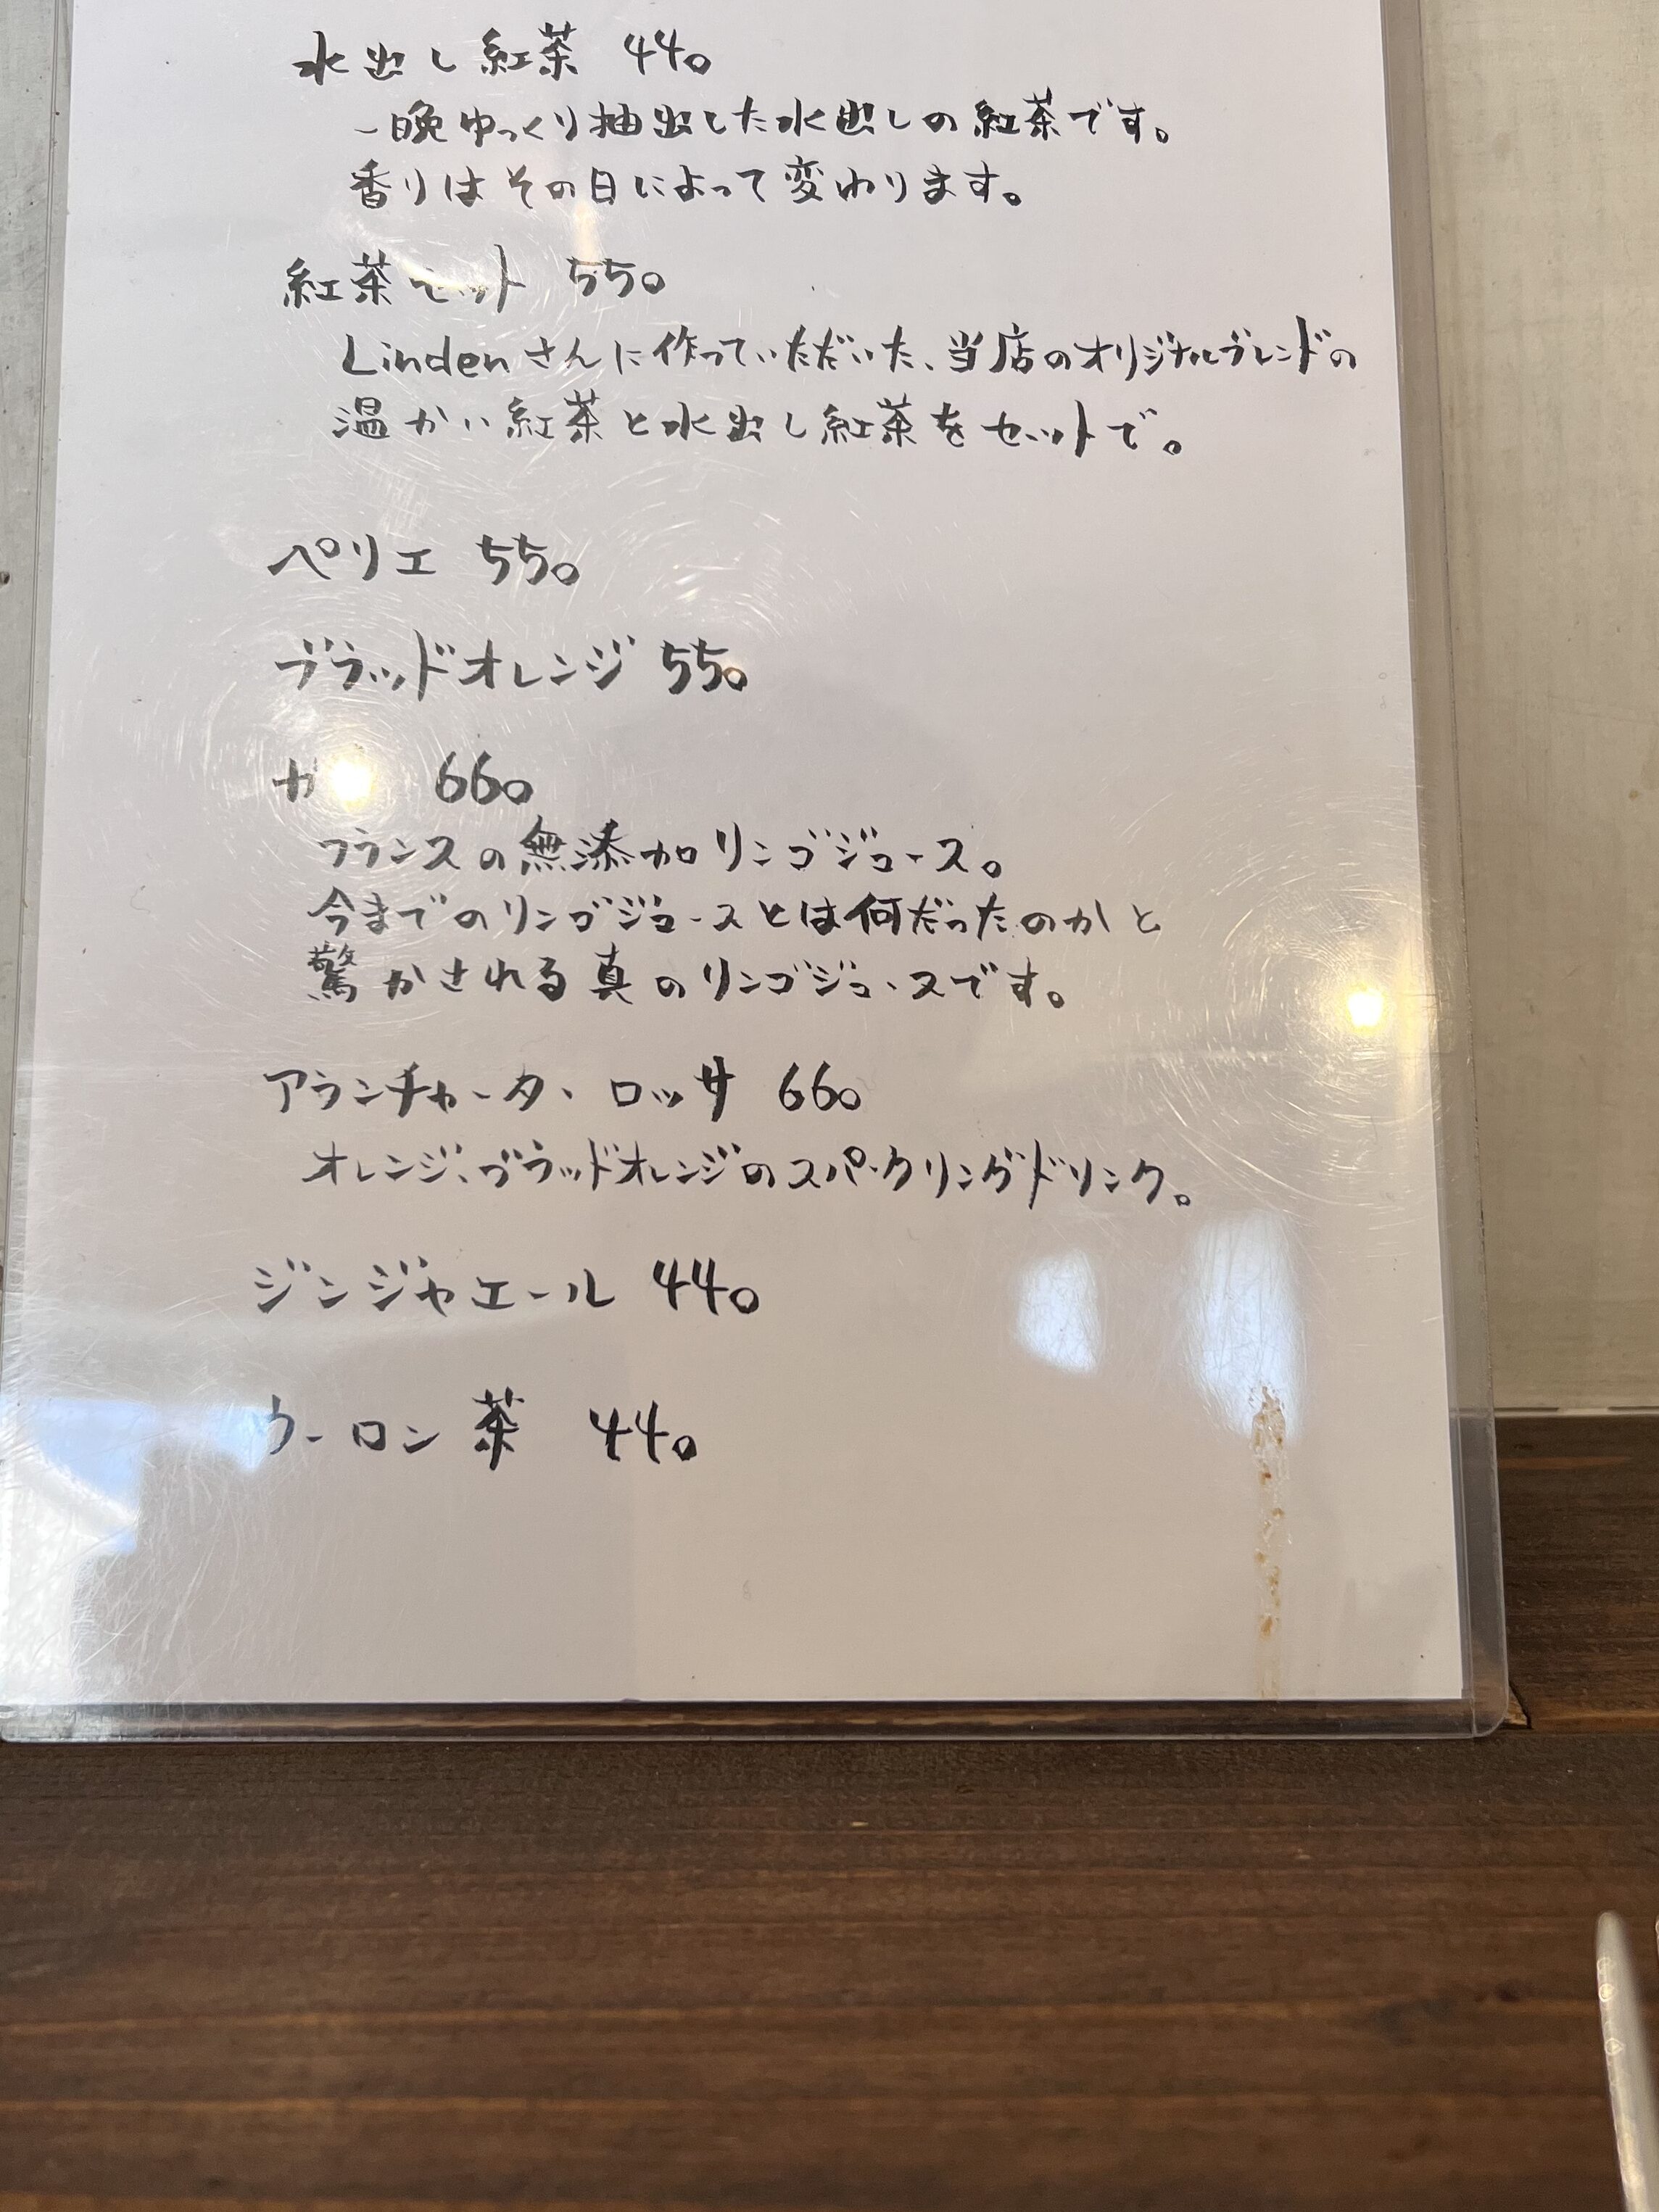 水出し紅茶 440
一晩ゆっくり抽出した水出しの紅茶です。
香りはその日によって変わります。
紅茶セット 550
Lindenさんに作っていただいた、当店のオリジナルブレンドの
温かい紅茶と水出し紅茶をセットで。
ペリエ 550
ブラッドオレンジ 550
660
フランスの無添加リンゴジュース。
今までのリンゴジュースとは何だったのかと
驚かされる真のリンゴジュースです。
アランチャータ・ロッサ 660
オレンジ、ブラッドオレンジのスパークリングドリンク。
ジンジャエール 440
ウーロン茶 440